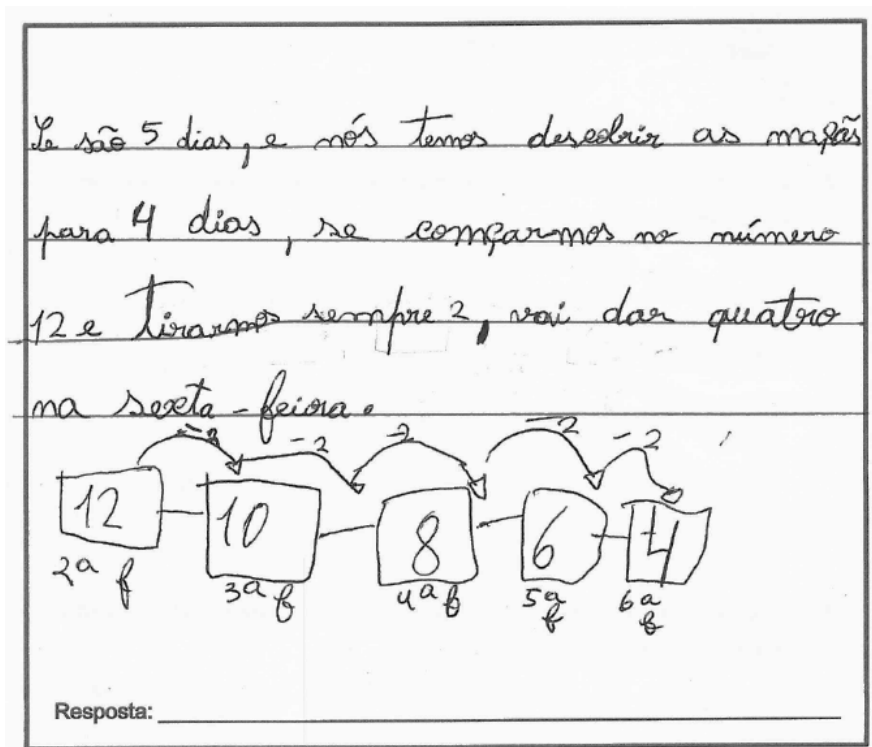 Se são 5 dias, e nós temos descobrir as maçãs
para 4 dias, se comçarmos no número
12 e tirarmos sempre 2, vai dar quatro
na sexta-feira.
-2 -2 -2 -2 -2
12 10 8 6 4
2ª f 3ª f 4ª f 5ª f 6ª f
Resposta: